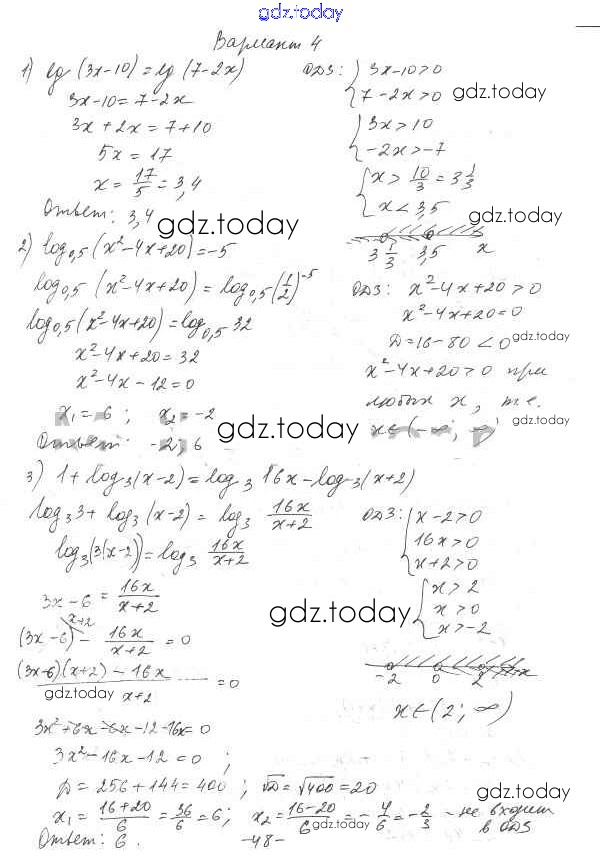 gdz.today
Вариант 4
1) lg (3x-10) = lg (7-2x)
3x-10 = 7-2x
3x+2x = 7+10
5x = 17
x = 17/5 = 3,4
Ответ: 3,4
ОДЗ: { 3x-10>0
7-2x>0
gdz.today
{ 3x>10
-2x>-7
{ x > 10/3 = 3 1/3
x < 3,5
gdz.today
3 1/3 3,5 x
gdz.today
2) log0,5 (x²-4x+20) = -5
log0,5 (x²-4x+20) = log0,5 (1/2)^-5
log0,5 (x²-4x+20) = log0,5 32
x²-4x+20 = 32
x²-4x-12 = 0
x₁ = 6 ; x₂ = -2
Ответ: -2; 6
ОДЗ: x²-4x+20 > 0
x²-4x+20 = 0
D = 16-80 < 0
gdz.today
x²-4x+20 > 0 при
любых x, т.е.
gdz.today
x ∈ (-∞; ∞)
gdz.today
3) 1 + log3 (x-2) = log3 16x - log3 (x+2)
log3 3 + log3 (x-2) = log3 16x/(x+2)
log3 (3(x-2)) = log3 16x/(x+2)
3x-6 = 16x/(x+2)
x+2
(3x-6) - 16x/(x+2) = 0
((3x-6)(x+2) - 16x)/(x+2) = 0
gdz.today
3x²+6x-6x-12-16x = 0
3x²-16x-12 = 0 ;
D = 256+144 = 400 ; √D = √400 = 20
x₁ = (16+20)/6 = 36/6 = 6 ; x₂ = (16-20)/6 = -4/6 = -2/3 - не входит
в ОДЗ
Ответ: 6.
ОДЗ: { x-2>0
16x>0
x+2>0
{ x>2
x>0
x>-2
gdz.today
-2 0 2 x
x ∈ (2; ∞)
gdz.today
gdz.today
-48-